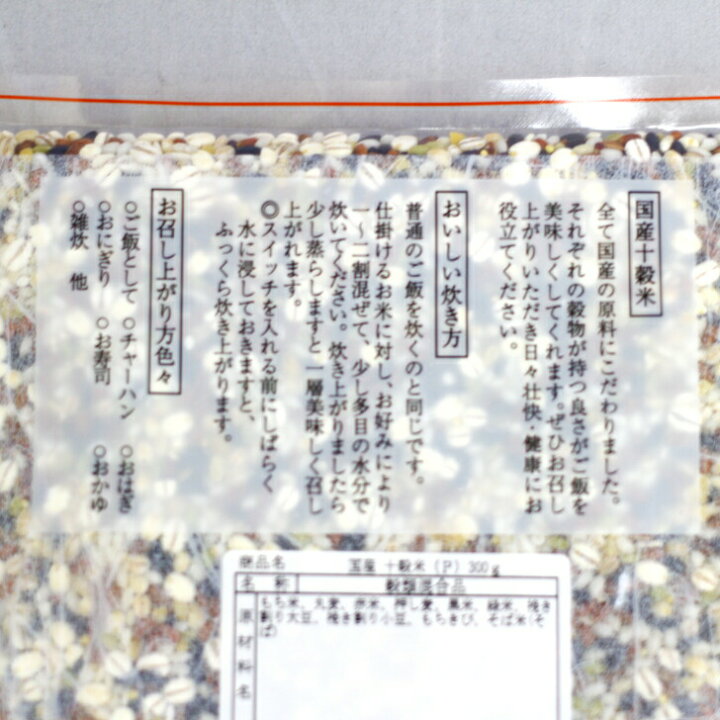 国産十穀米
全て国産の原料にこだわりました。
それぞれの穀物が持つ良さがご飯を
美味しくしてくれます。ぜひお召し
上がりいただき日々壮快・健康にお
役立てください。
おいしい炊き方
普通のご飯を炊くのと同じです。
仕掛けるお米に対し、お好みにより
一～二割混ぜて、少し多目の水分で
炊いてください。炊き上がりましたら
少し蒸らしますと一層美味しく召し
上がれます。
◎スイッチを入れる前にしばらく
水に浸しておきますと、
ふっくら炊き上がります。
お召し上がり方色々
○ご飯として ○チャーハン ○おはぎ
○おにぎり ○お寿司 ○おかゆ
○雑炊 他
商品名 国産 十穀米(P) 300g
名称 穀類混合品
原材料名 もち米、丸麦、赤米、押し麦、黒米、緑米、挽き
割り大豆、挽き割り小豆、もちきび、そば米(そ
ば)